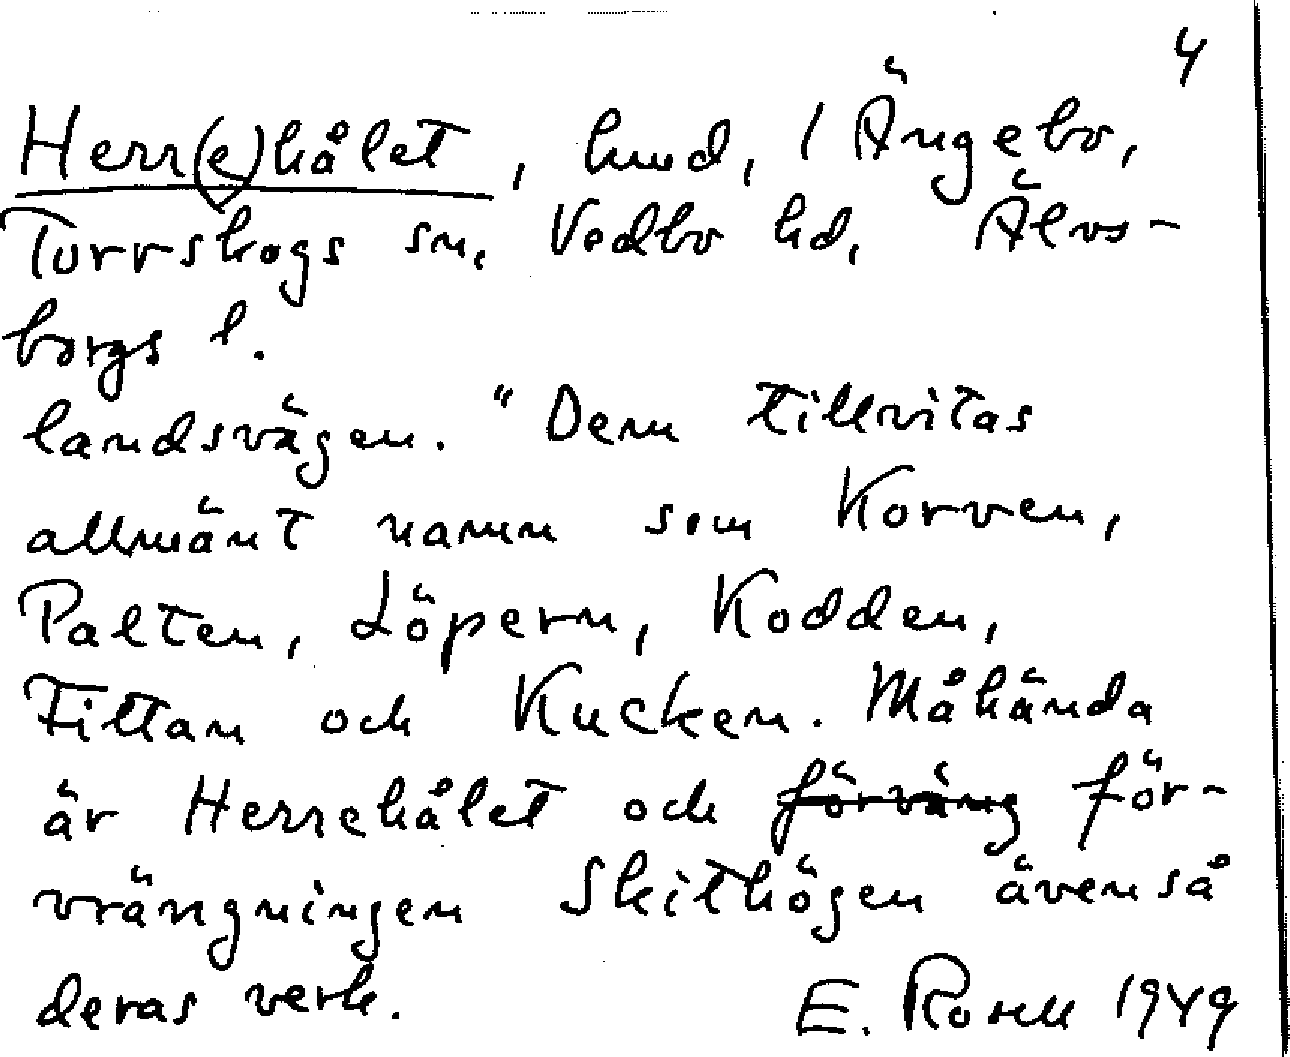 4
Herr(e)hålet, lund, / Ängebo,
Torrskogs sn, Vedbo hd, Älvs-
borgs l.
landsvägen. "Dem tillvitas
allmänt namn som Korven,
Palten, Löpern, Kodden,
Fittan och Kucken. Måhända
är Herrehålet och förväng för-
vrängningen Skithögenävenså
deras verk. E. Rosell 1949